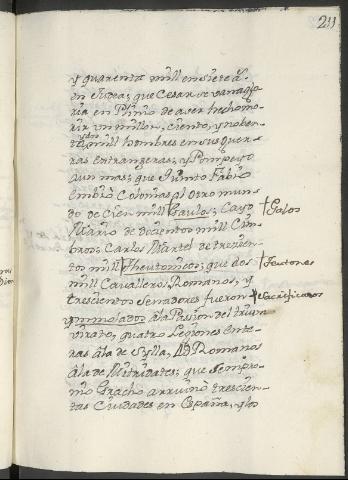 211
y quarenta mill en siete a.
en Judea; que Cesar se vanaglo
ria en Plinio de aver hecho mo-
rir un millon, ciento, y noben-
ta y dos mill hombres en sus guer-
ras estrangeras; y Pompeyo
aun mas; que Quinto Fabio
embiò Colonias al otro mun-
do de cien mill Gaulos; Cayo † Galos
Mario de docientos mill Cim
bros; Carlos Martel de trecien-
tos mill Theutonicos; que dos † Teutones
mill Cavalleros Romanos, y
trescientos Senadores fueron † Sacrificados
ymmolados à la Passion del trium
virato, quatro Legiones ente-
ras à la de Sylla, Romanos
à la de Mitridates; que Sempro-
nio Gracho arruinò trescien-
tas Ciudades en España, y los